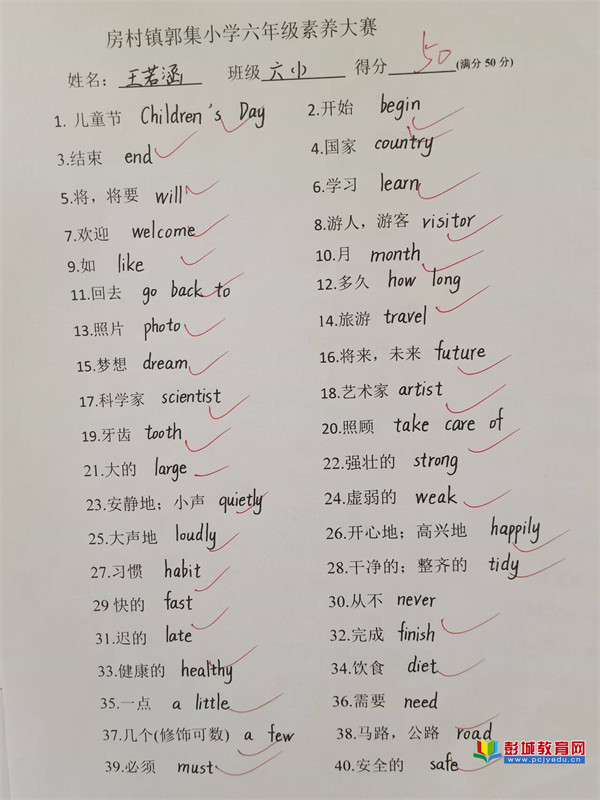 房村镇郭集小学六年级素养大赛
姓名：王若涵 班级 六小 得分 50 (满分 50 分)
1. 儿童节 Children's Day 2.开始 begin
3.结束 end 4.国家 country
5.将，将要 will 6.学习 learn
7.欢迎 welcome 8.游人，游客 visitor
9.如 like 10.月 month
11.回去 go back to 12.多久 how long
13.照片 photo 14.旅游 travel
15.梦想 dream 16.将来，未来 future
17.科学家 scientist 18.艺术家 artist
19.牙齿 tooth 20.照顾 take care of
21.大的 large 22.强壮的 strong
23.安静地；小声 quietly 24.虚弱的 weak
25.大声地 loudly 26.开心地；高兴地 happily
27.习惯 habit 28.干净的；整齐的 tidy
29 快的 fast 30.从不 never
31.迟的 late 32.完成 finish
33.健康的 healthy 34.饮食 diet
35.一点 a little 36.需要 need
37.几个(修饰可数) a few 38.马路，公路 road
39.必须 must 40.安全的 safe
彭城教育网
www.pcjyedu.cn